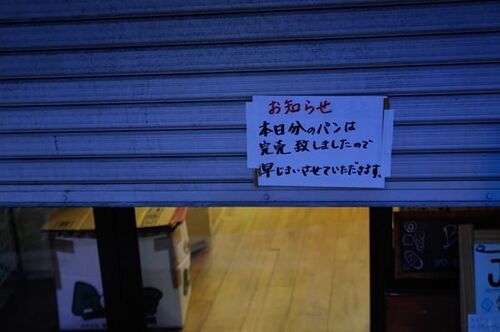 お知らせ
本日分のパンは
完売致しましたので
早じまいさせていただきます。